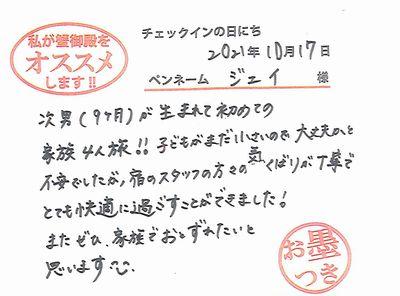 私が蟹御殿を
オススメ
します!!
チェックインの日にち
2021年10月17日
ペンネーム ジェイ 様
次男(9ヶ月)が生まれて初めての
家族4人旅!!子どもがまだ小さいので、大丈夫かと
不安でしたが、宿のスタッフの方々の気くばりが丁寧で
とても快適に過ごすことができました!
またぜひ、家族でおとずれたいと
思います
お墨
つき